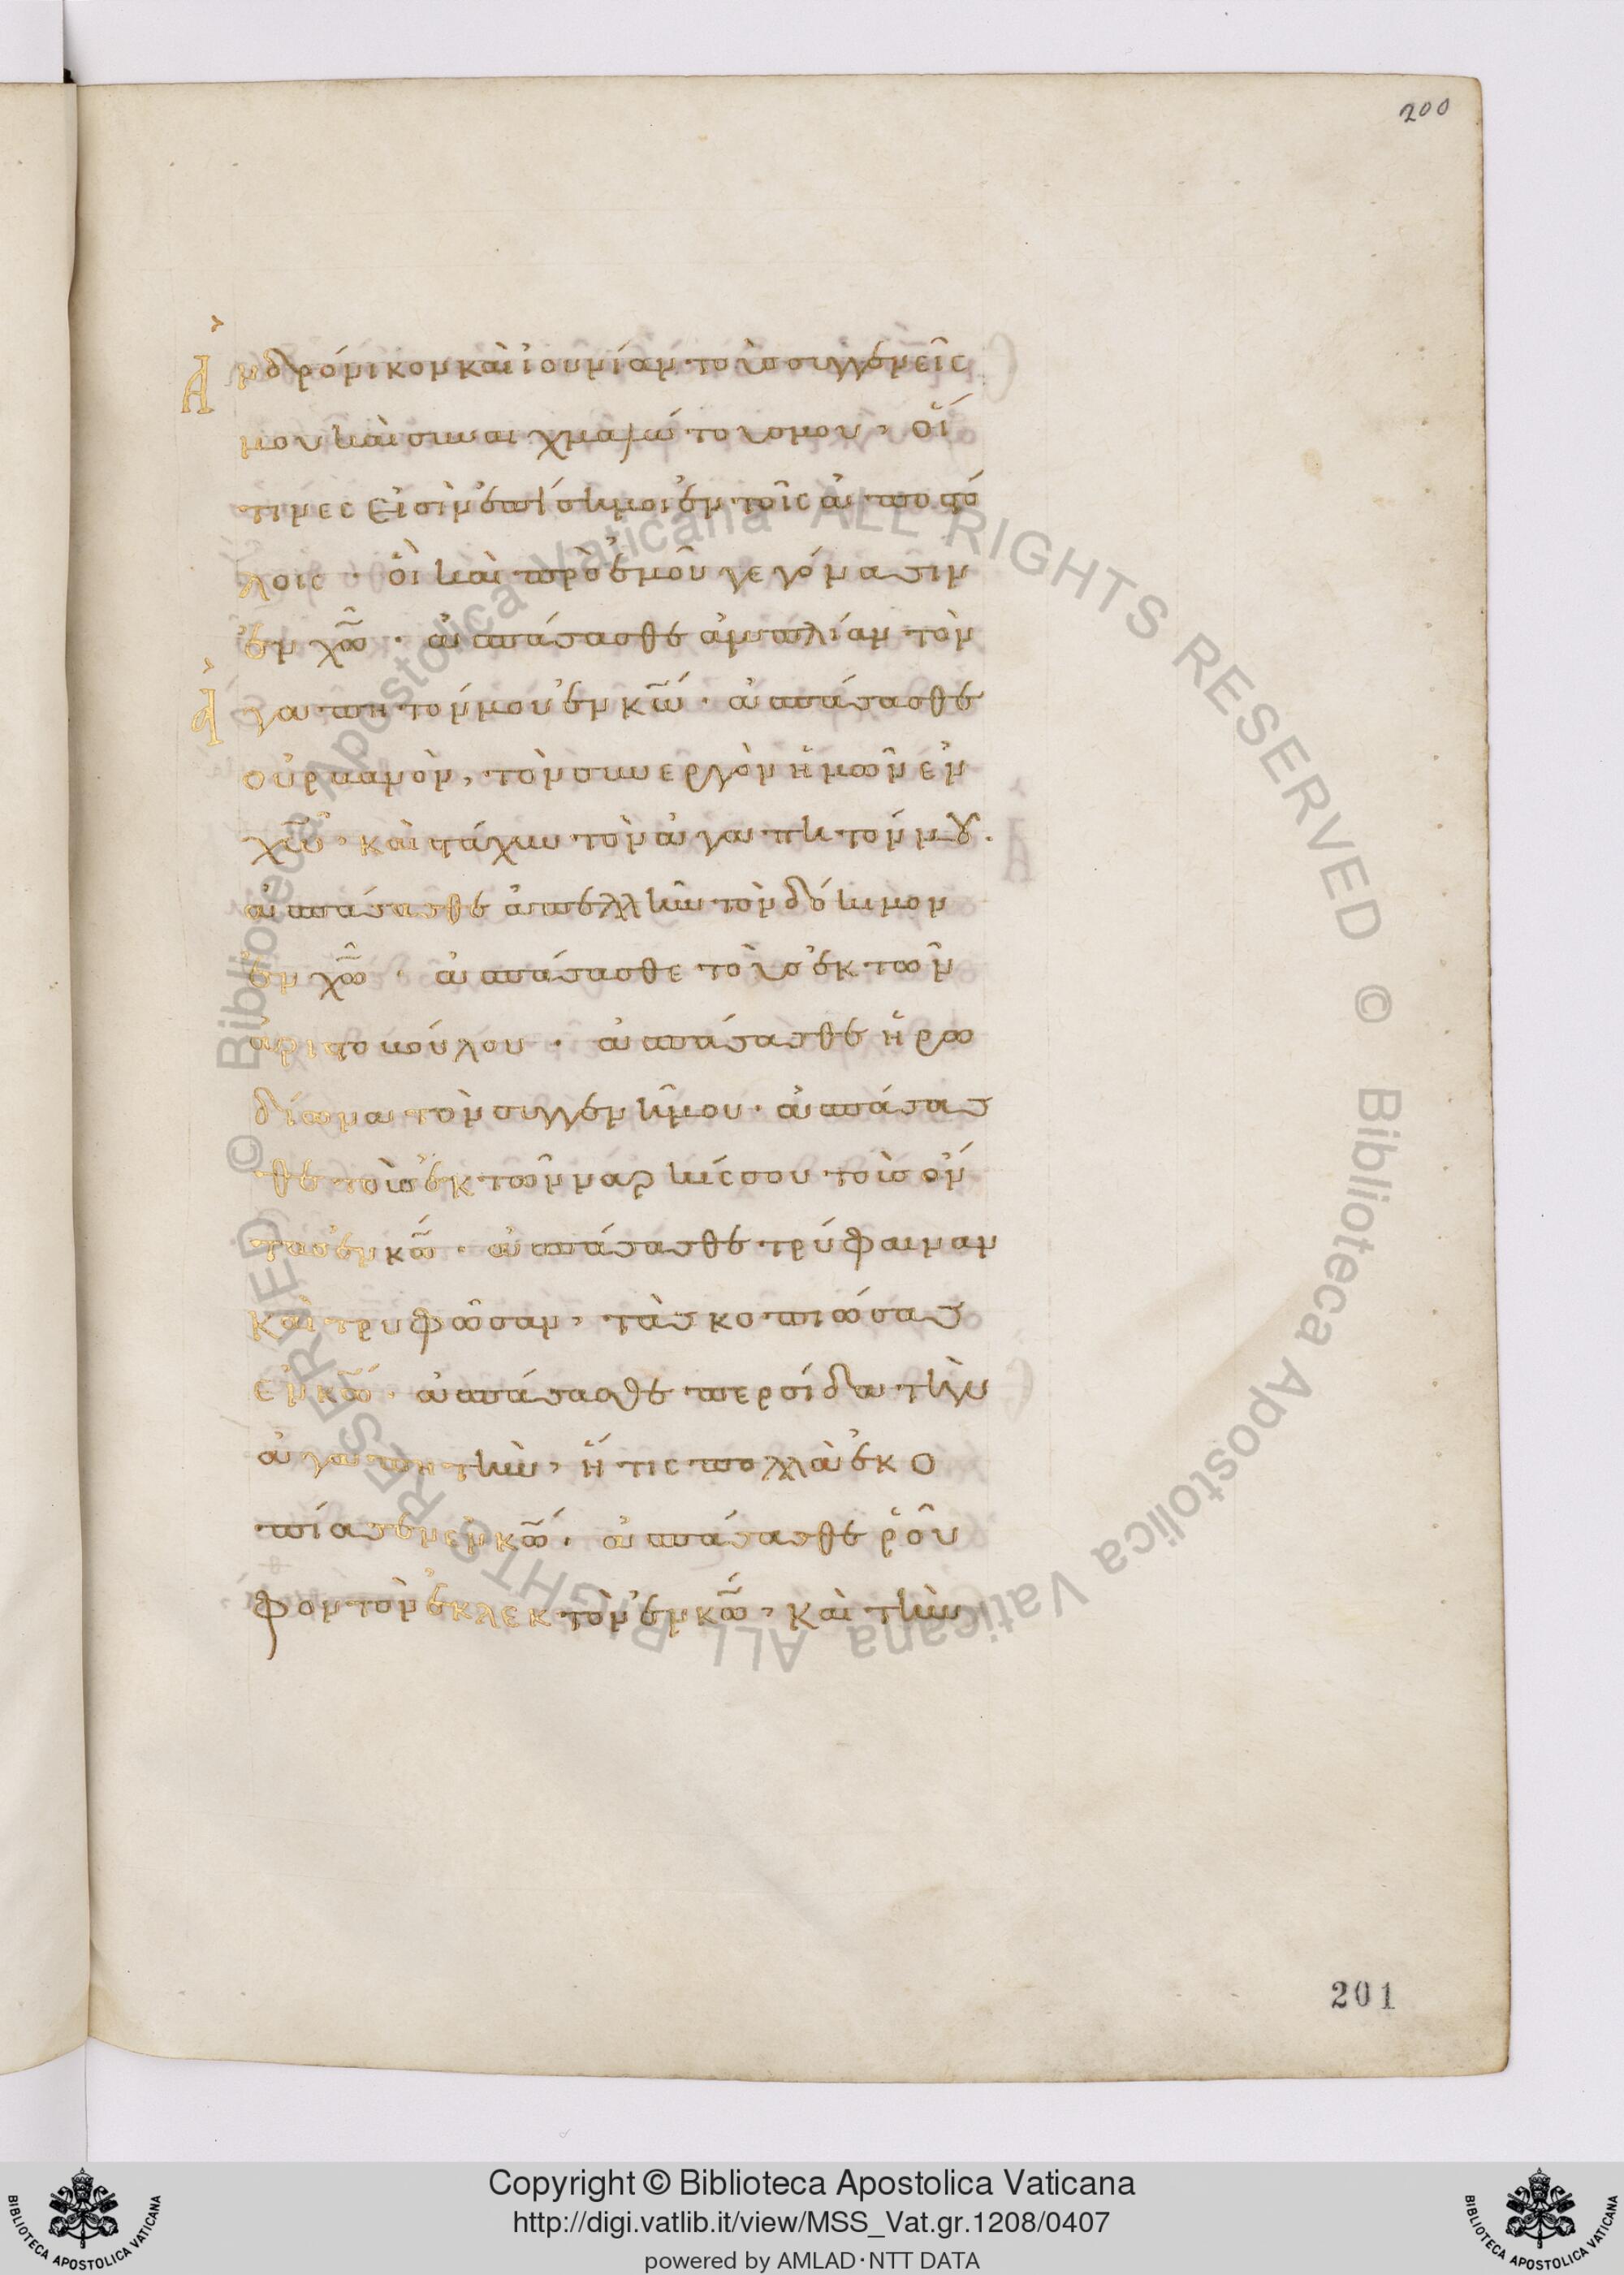 200
Ἀνδρόνικον καὶ ἰουνίαν τοὺς συγγενεῖς
μου καὶ συναιχμαλώτους μου, οἵ
τινες εἰσὶν ἐπίσημοι ἐν τοῖς ἀποστό
λοις · οἳ καὶ πρὸ ἐμοῦ γεγόνασιν
ἐν χ͞ω · ἀσπάσασθε ἀμπλίαν τὸν
ἀγαπητόν μου ἐν κ͞ω · ἀσπάσασθε
οὐρβανὸν, τὸν συνεργὸν ἡμῶν ἐν
χ͞ω · καὶ στάχυν τὸν ἀγαπητόν μου.
ἀσπάσασθε ἀπελλῆν τὸν δόκιμον
ἐν χ͞ω · ἀσπάσασθε τοὺς ἐκ τῶν
ἀριστοβούλου · ἀσπάσασθε ἡρω
δίωνα τὸν συγγενῆ μου · ἀσπάσασ
θε τοὺς ἐκ τῶν ναρκίσσου τοὺς ὄν
τας ἐν κ͞ω · ἀσπάσασθε τρύφαιναν
καὶ τρυφῶσαν, τὰς κοπιώσας
ἐν κ͞ω · ἀσπάσασθε περσίδα τὴν
ἀγαπητὴν, ἥτις πολλὰ ἐκο
πίασεν ἐν κ͞ω · ἀσπάσασθε ῥοῦ
φον τὸν ἐκλεκτὸν ἐν κ͞ω, καὶ τὴν
201
© Biblioteca Apostolica Vaticana ALL RIGHTS RESERVED © Biblioteca Apostolica Vaticana ALL RIGHTS RESERVED
BIBLIOTECA APOSTOLICA VATICANA
Copyright © Biblioteca Apostolica Vaticana
http://digi.vatlib.it/view/MSS_Vat.gr.1208/0407
powered by AMLAD·NTT DATA
BIBLIOTECA APOSTOLICA VATICANA